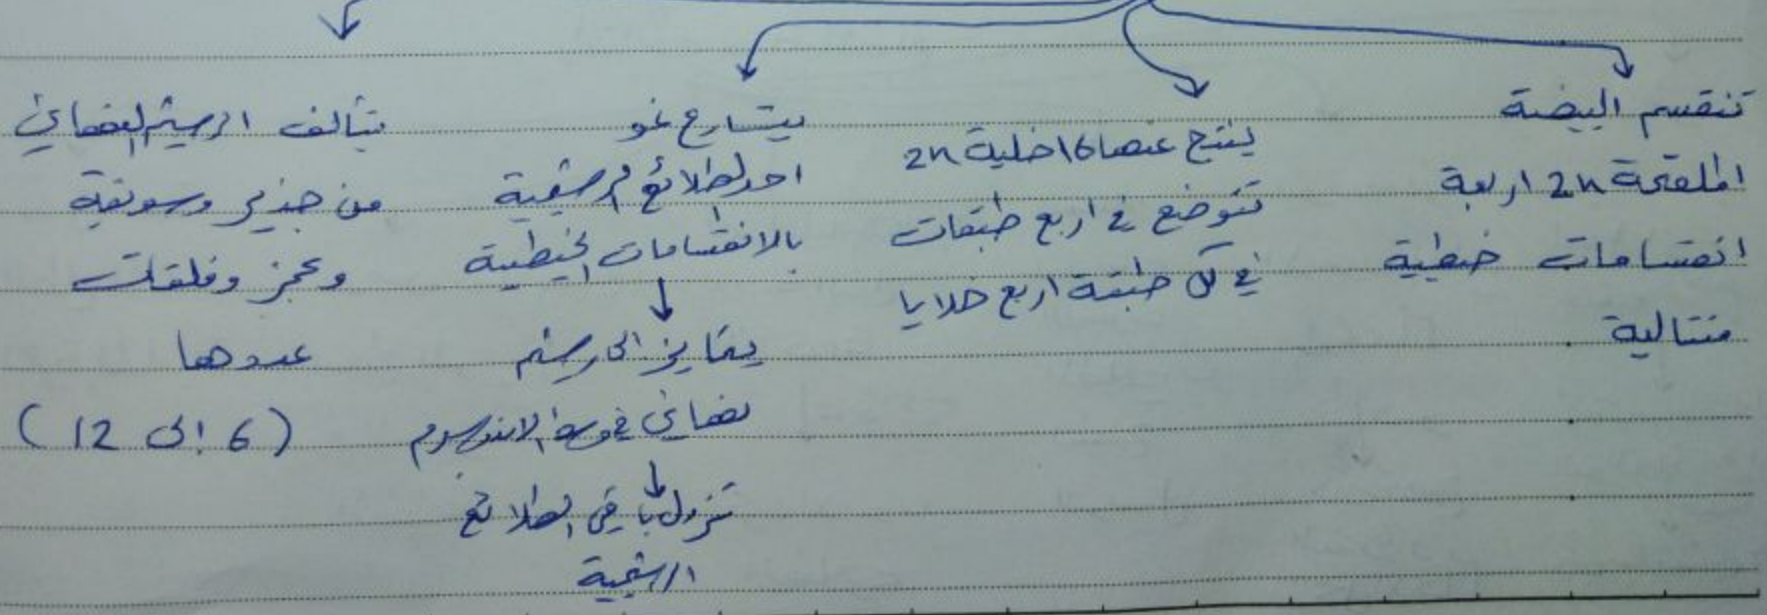 تنقسم البيضة
الملقحة 2n اربعة
انقسامات خيطية
متتالية
ينتج عنها 16 خلية 2n
تتوضع في اربع طبقات
في كل طبقة اربع خلايا
يتسارع نمو
احد الطلائع الرشيمية
بالانقسامات الخيطية
يتمايز الى رشيم
نهائي في وسط الاندوسبرم
تزول باقي الطلائع
الرشيمية
يتألف الرشيم النهائي
من جذير وسويقة
وعجز وفلقات
عددها
(6 الى 12)